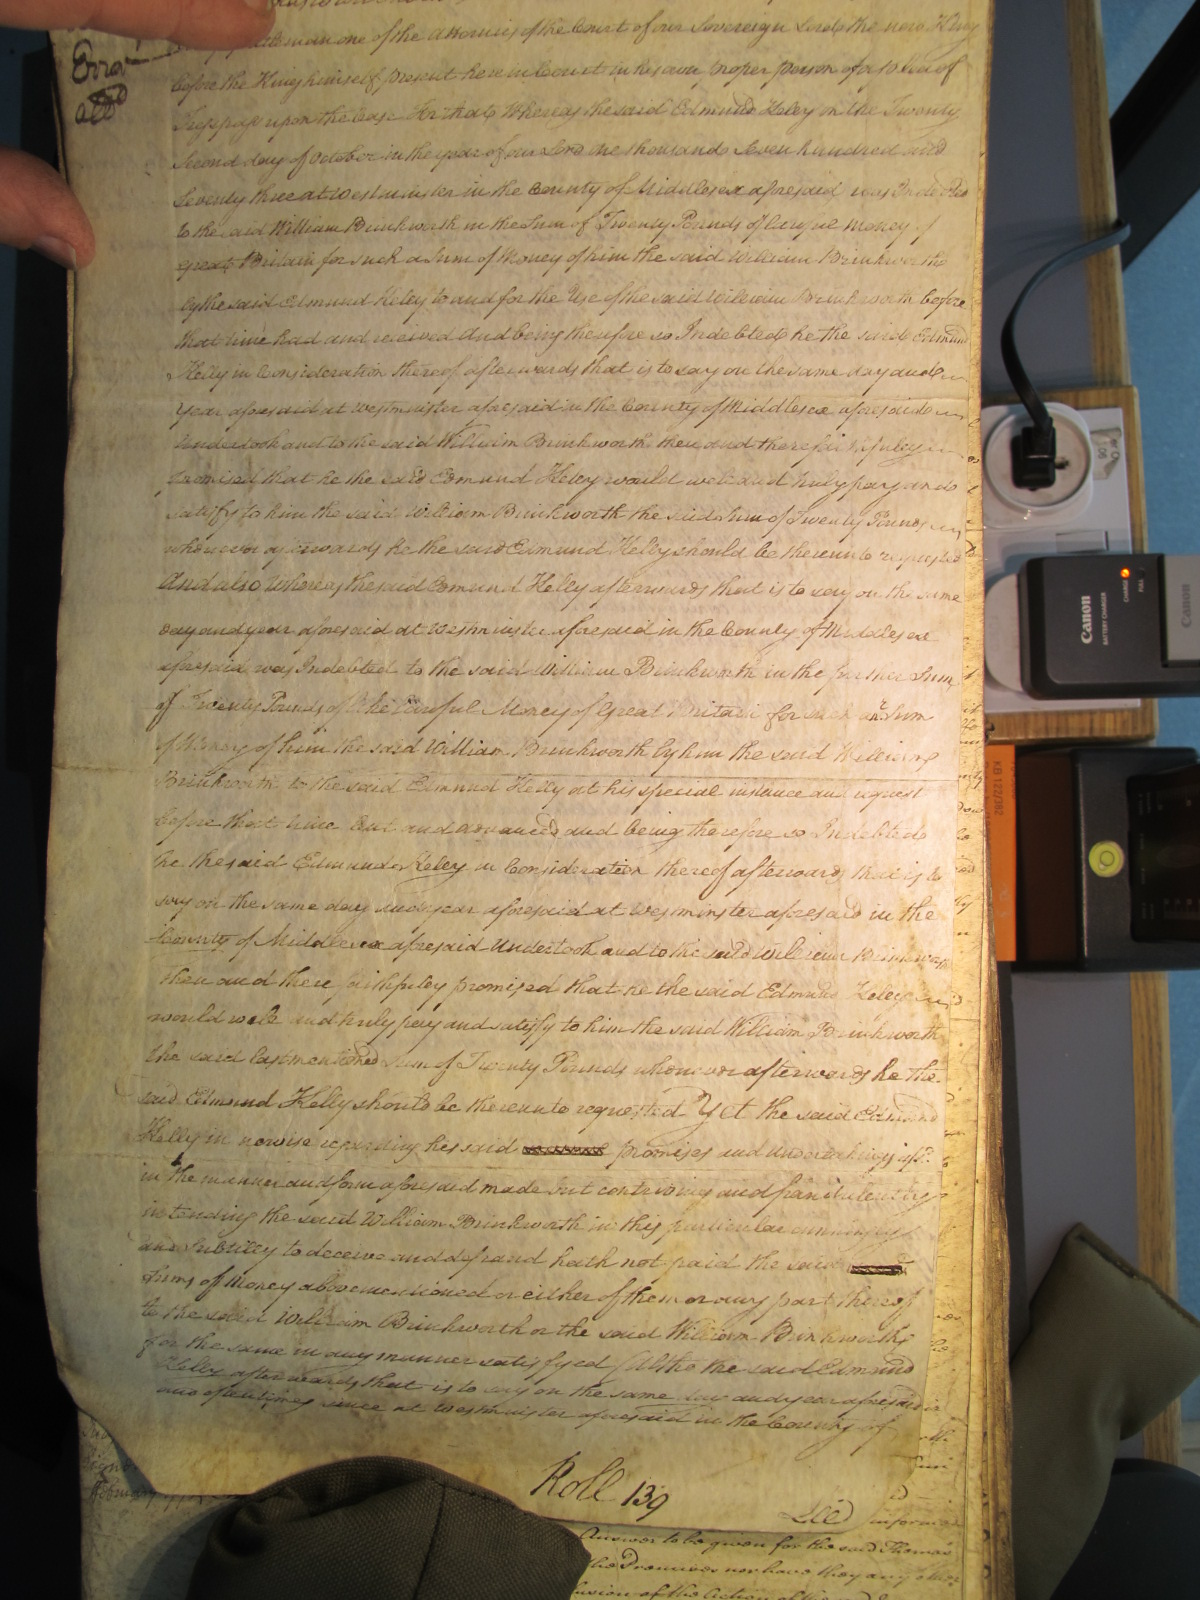 Error
Gentleman one of the attornies of the Court of our Sovereign Lord the now King
before the King himself present here in Court in his own proper person of a plea of
Trespass upon the Case For that Whereas the said Edmund Kelly on the Twenty
Second day of October in the year of our Lord one thousand Seven hundred and
Seventy three at Westminster in the County of Middlesex aforesaid was Indebted
to the said William Brinkworth in the Sum of Twenty Pounds of lawful money of
great Britain for such a Sum of Money of him the said William Brinkworth
by the said Edmund Kelly to and for the Use of the said William Brinkworth before
that time had and received And being therefore so Indebted he the said Edmund
Kelly in Consideration thereof afterwards that is to say on the same day and
Year aforesaid at Westminster aforesaid in the County of Middlesex aforesaid
Undertook and to the said William Brinkworth then and there faithfully
promised that he the said Edmund Kelly would well and truly pay and
satisfy to him the said William Brinkworth the said Sum of Twenty Pounds
whenever afterwards he the said Edmund Kelly should be thereunto requested
And also Whereas the said Edmund Kelly afterwards that is to say on the same
day and year aforesaid at Westminster aforesaid in the County of Middlesex
aforesaid was Indebted to the said William Brinkworth in the further Sum
of Twenty Pounds of like lawful Money of Great Britain for such Sum
of Money of him the said William Brinkworth by him the said William
Brinkworth to the said Edmund Kelly at his special instance and request
before that time lent and advanced and being therefore so Indebted
he the said Edmund Kelly in Consideration thereof afterwards that is to
say on the same day and year aforesaid at Westminster aforesaid in the
County of Middlesex aforesaid Undertook and to the said William Brinkworth
then and there faithfully promised that he the said Edmund Kelly
would well and truly pay and satisfy to him the said William Brinkworth
the said last mentioned Sum of Twenty Pounds whenever afterwards he the
said Edmund Kelly should be thereunto requested Yet the said Edmund
Kelly in nowise regarding his said promises and undertakings
in the manner and form aforesaid made but contriving and fraudulently
intending the said William Brinkworth in this particular cunningly
and subtilly to deceive and defraud hath not paid the said
Sums of Money abovementioned or either of them or any part thereof
to the said William Brinkworth or the said William Brinkworth
for the same in any manner satisfyed Altho the said Edmund
Kelly afterwards that is to say on the same day and year aforesaid
and oftentimes since at Westminster aforesaid in the County of
Roll 139
Answer to be given for the said Thomas
the Premises nor have they any other
Canon
BATTERY CHARGER
CHARGE
FULL
Canon
KB 122/382